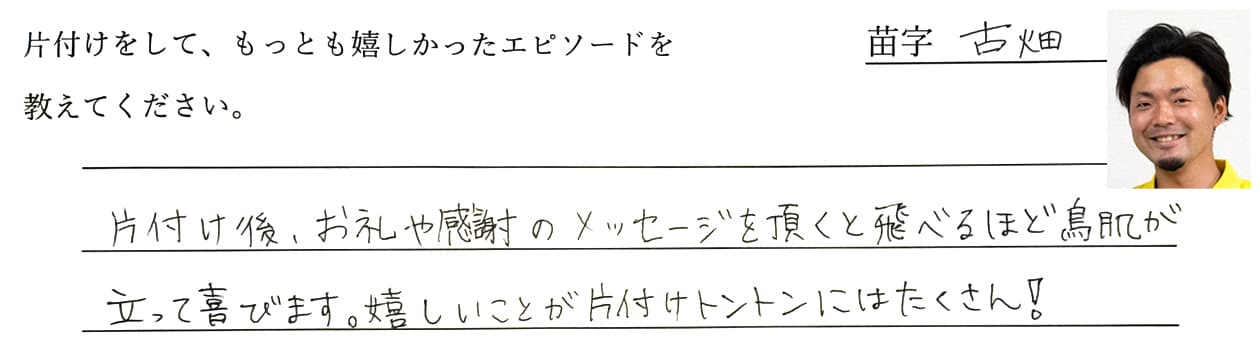 片付けをして、もっとも嬉しかったエピソードを
教えてください。
苗字 古畑
片付け後、お礼や感謝のメッセージを頂くと飛べるほど鳥肌が
立って喜びます。嬉しいことが片付けトントンにはたくさん!